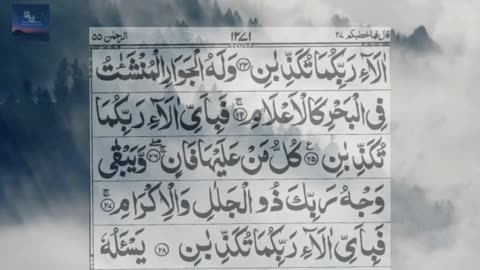 قال فما خطبكم ٢٧ ١٢٧١ الرحمٰن ٥٥
اٰلَآءِ رَبِّكُمَا تُكَذِّبٰنِ ﴿۲۳﴾ وَلَهُ الْجَوَارِ الْمُنْشَـٰٔتُ
فِى الْبَحْرِ كَالْاَعْلَامِ ﴿۲۴﴾ۚ فَبِاَىِّ اٰلَآءِ رَبِّكُمَا
تُكَذِّبٰنِ ﴿۲۵﴾ ع كُلُّ مَنْ عَلَيْهَا فَانٍ ﴿۲۶﴾ۚۖ وَّيَبْقٰى
وَجْهُ رَبِّكَ ذُو الْجَلٰلِ وَالْاِكْرَامِ ﴿۲۷﴾ۚ
فَبِاَىِّ اٰلَآءِ رَبِّكُمَا تُكَذِّبٰنِ ﴿۲۸﴾ يَسْـَٔلُهٗ